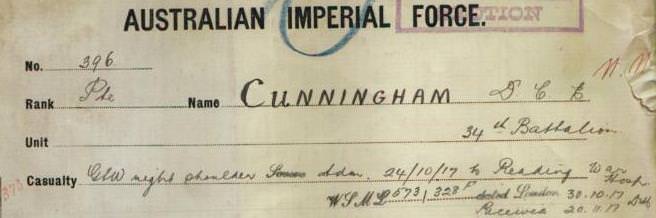 AUSTRALIAN IMPERIAL FORCE.
TION
No. 396
Rank Pte Name CUNNINGHAM D C E
Unit 34th Battalion
Casualty GSW right shoulder Adm. 24/10/17 to Reading War Hosp.
W.S.M.L 573/328 dated London 30.10.17
Received 20.11.17